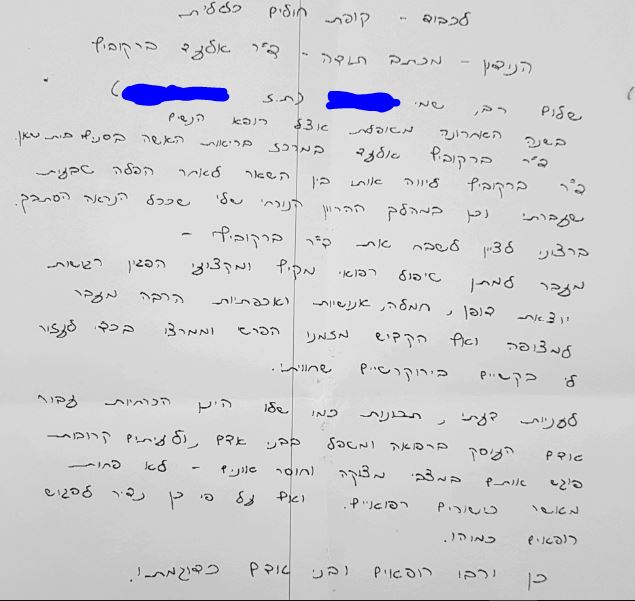 לכבוד - קופת חולים כללית
הנידון - מכתב תודה - ד"ר אלעד ברקוביץ
שלום רב, שמי (ת.ז )
בשנה האחרונה מטופלת אצל רופא הנשים
ד"ר ברקוביץ אלעד במרכז בריאות האשה בסניף בית שאן.
ד"ר ברקוביץ ליווה אותי בין השאר לאחר הפלה טבעית
שעברתי וכן במהלך ההריון הנוכחי שלי שככל הנראה הסתבך.
ברצוני לציין לשבח את ד"ר ברקוביץ -
מעבר למתן טיפול רפואי מקיף ומקצועי הפגין רגישות
יוצאת דופן, חמלה, אנושיות ואכפתיות הרבה מעבר
למצופה ואף הקדיש מזמנו הפרטי וממרצו בכדי לעזור
לי בקשיים בירוקרטיים שחוויתי.
לעניות דעתי, תכונות כמו שלו הינן הכרחיות עבור
אדם העוסק ברפואה ומטפל בבני אדם, ולעיתים קרובות
פוגש אותם במצבי מצוקה וחוסר אונים - לא פחות
מאשר כישורים רפואיים. ואף על פי כן נדיר לפגוש
רופאים כמוהו.
כן ירבו רופאים ובני אדם כדוגמתו.